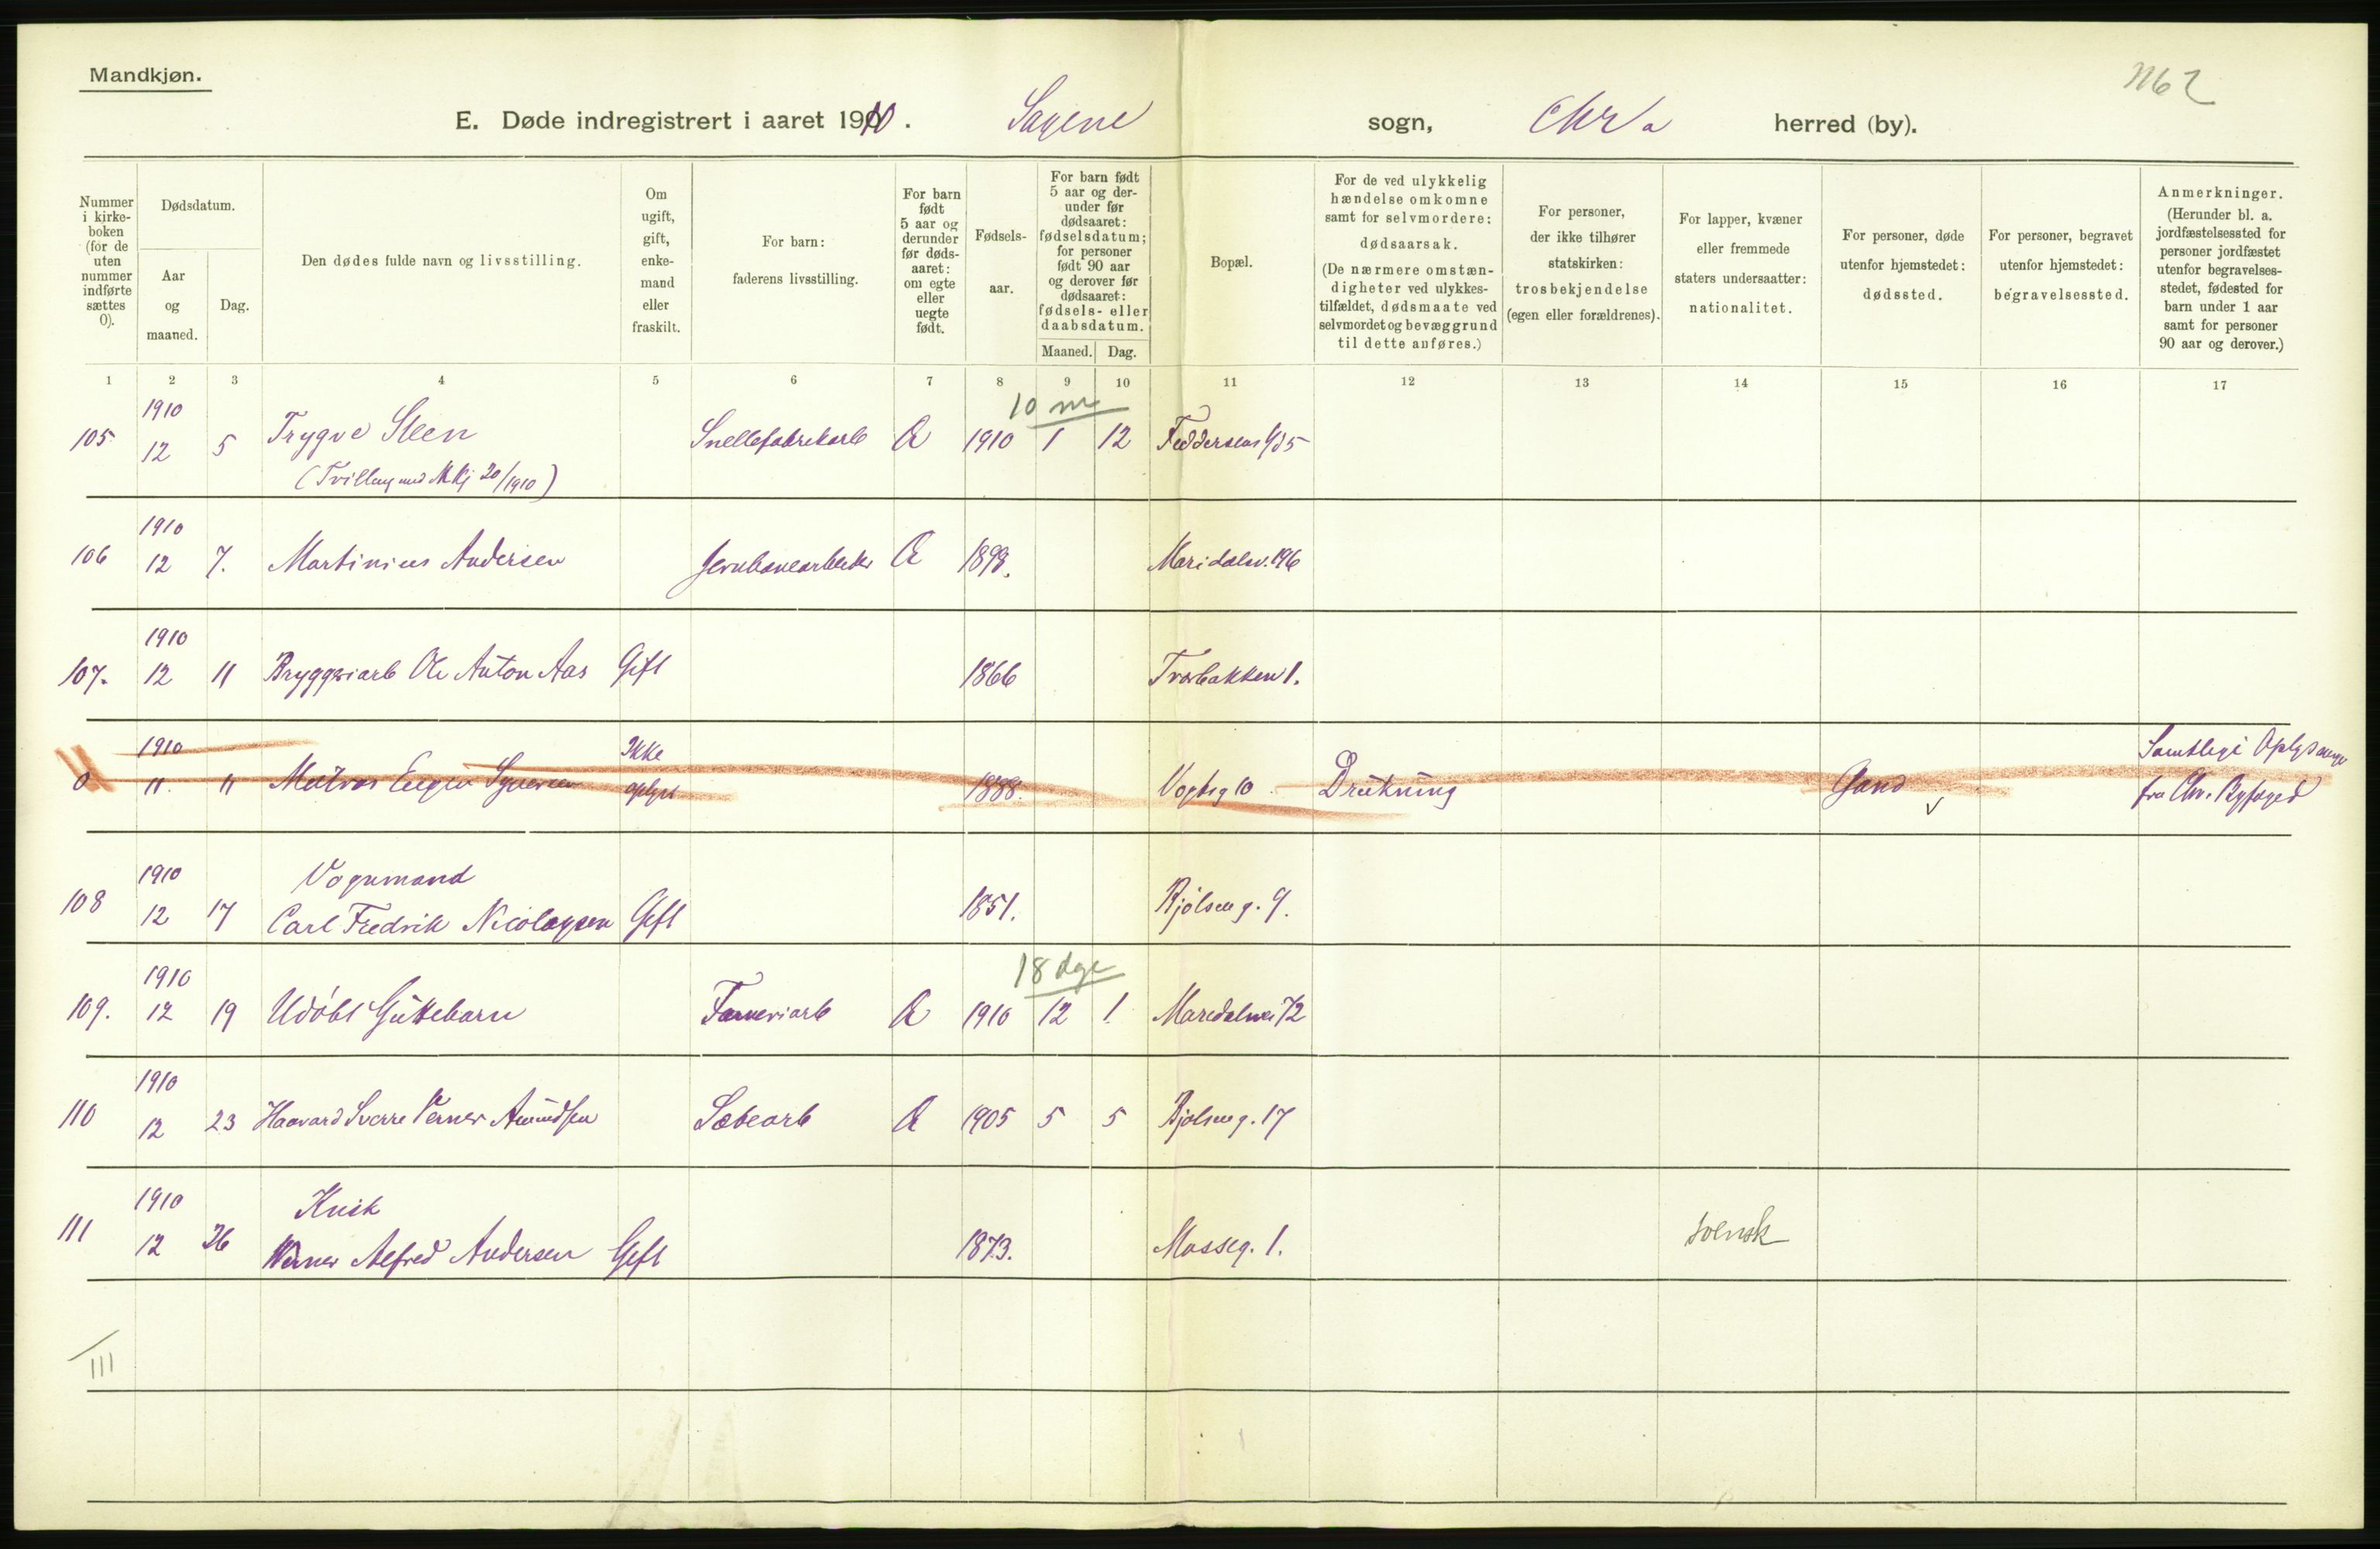 Mandkjøn.
1162
E. Døde indregistrert i aaret 1910. Sagene sogn, Chr a herred (by).
Nummer i kirke-boken (for de uten nummer indførte sættes 0).
Dødsdatum.
Aar og maaned.
Dag.
Den dødes fulde navn og livsstilling.
Om ugift, gift, enke-mand eller fraskilt.
For barn: faderens livsstilling.
For barn født 5 aar og derunder før døds-aaret: om egte eller uegte født.
Fødsels-aar.
For barn født 5 aar og der-under før dødsaaret: fødselsdatum; for personer født 90 aar og derover før dødsaaret: fødsels- eller daabsdatum.
Maaned. Dag.
Bopæl.
For de ved ulykkelig hændelse omkomne samt for selvmordere: dødsaarsak. (De nærmere omstæn-digheter ved ulykkes-tilfældet, dødsmaate ved selvmordet og bevæggrund til dette anføres.)
For personer, der ikke tilhører statskirken: trosbekjendelse (egen eller forældrenes).
For lapper, kvæner eller fremmede staters undersaatter: nationalitet.
For personer, døde utenfor hjemstedet: dødssted.
For personer, begravet utenfor hjemstedet: begravelsessted.
Anmerkninger. (Herunder bl. a. jordfæstelsessted for personer jordfæstet utenfor begravelses-stedet, fødested for barn under 1 aar samt for personer 90 aar og derover.)
1 2 3 4 5 6 7 8 9 10 11 12 13 14 15 16 17
1910 10 m
105 12 5 Trygve Steen Snellefabrikarb Æ 1910 1 12 Feddersens g 5
(Tvilling med M Kj 20/1910)
1910
106 12 7. Martinius Andersen Jernbanearbeider Æ 1899. Maridalsv. 196
1910
107. 12 11 Bryggeriarb Ole Anton Aas Gift 1866 Tværbakken 1.
1910 Ikke Samtlige Oplysninger
0 11 11 Matros Eugen Syversen oplyst 1888 Vogtsg 10 Drukning Gand fra Chr. Byfoged
1910 Vognmand
108 12 17 Carl Fredrik Nicolaysen Gift 1851. Bjølseng. 9.
1910 18 dge
109. 12 19 Udøbt Guttebarn Farveriarb Æ 1910 12 1. Maridalsvei 72
1910
110 12 23 Haavard Sverre Verner Amundsen Sæbearb Æ 1905 5 5 Bjølseng. 17
1910 Kusk
111 12 26 Werner Alfred Andersen Gift 1873. Mosseg. 1. svensk
111